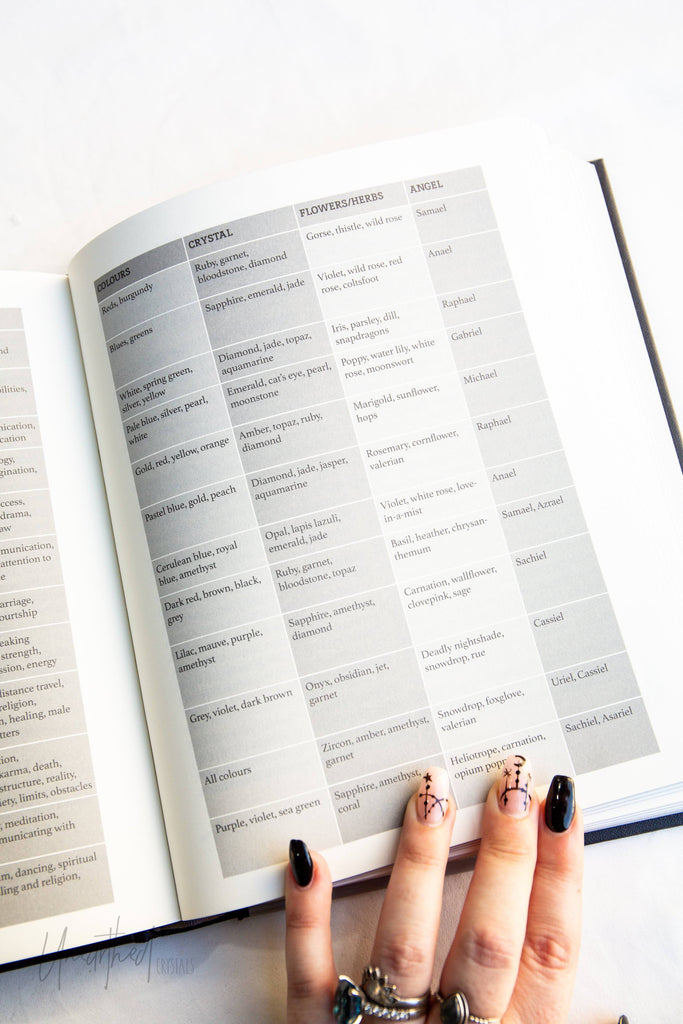 nd
bilities,
nication,
cation
ogy,
gination,
ccess,
drama,
aw
munication,
attention to
e
arriage,
ourtship
eaking
strength,
ssion, energy
distance travel,
religion,
n, healing, male
tters
ion,
karma, death,
structure, reality,
iety, limits, obstacles
, meditation,
municating with
m, dancing, spiritual
ling and religion,
COLOURS CRYSTAL FLOWERS/HERBS ANGEL
Reds, burgundy
Ruby, garnet,
bloodstone, diamond
Gorse, thistle, wild rose
Samael
Blues, greens
Sapphire, emerald, jade
Violet, wild rose, red
rose, coltsfoot
Anael
White, spring green,
silver, yellow
Diamond, jade, topaz,
aquamarine
Iris, parsley, dill,
snapdragons
Raphael
Pale blue, silver, pearl,
white
Emerald, cat's eye, pearl,
moonstone
Poppy, water lily, white
rose, moonswort
Gabriel
Gold, red, yellow, orange
Amber, topaz, ruby,
diamond
Marigold, sunflower,
hops
Michael
Pastel blue, gold, peach
Diamond, jade, jasper,
aquamarine
Rosemary, cornflower,
valerian
Raphael
Cerulean blue, royal
blue, amethyst
Opal, lapis lazuli,
emerald, jade
Violet, white rose, love-
in-a-mist
Anael
Dark red, brown, black,
grey
Ruby, garnet,
bloodstone, topaz
Basil, heather, chrysan-
themum
Samael, Azrael
Lilac, mauve, purple,
amethyst
Sapphire, amethyst,
diamond
Carnation, wallflower,
clovepink, sage
Sachiel
Grey, violet, dark brown
Onyx, obsidian, jet,
garnet
Deadly nightshade,
snowdrop, rue
Cassiel
All colours
Zircon, amber, amethyst,
garnet
Snowdrop, foxglove,
valerian
Uriel, Cassiel
Purple, violet, sea green
Sapphire, amethyst,
coral
Heliotrope, carnation,
opium popp
Sachiel, Asariel
Unearthed
CRYSTALS